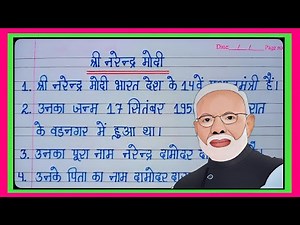 Date: / / Page no
श्री नरेन्द्र मोदी
1. श्री नरेन्द्र मोदी भारत देश के 14वें प्रधानमंत्री हैं।
2. उनका जन्म 17 सितंबर 195
के वडनगर में हुआ था।
3. उनका पूरा नाम नरेन्द्र दामोदर
4. उनके पिता का नाम दामोदर